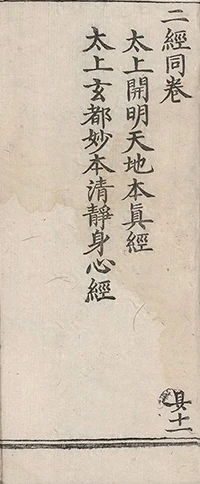 二經同卷
太上開明天地本真經
太上玄都妙本清靜身心經
具十一